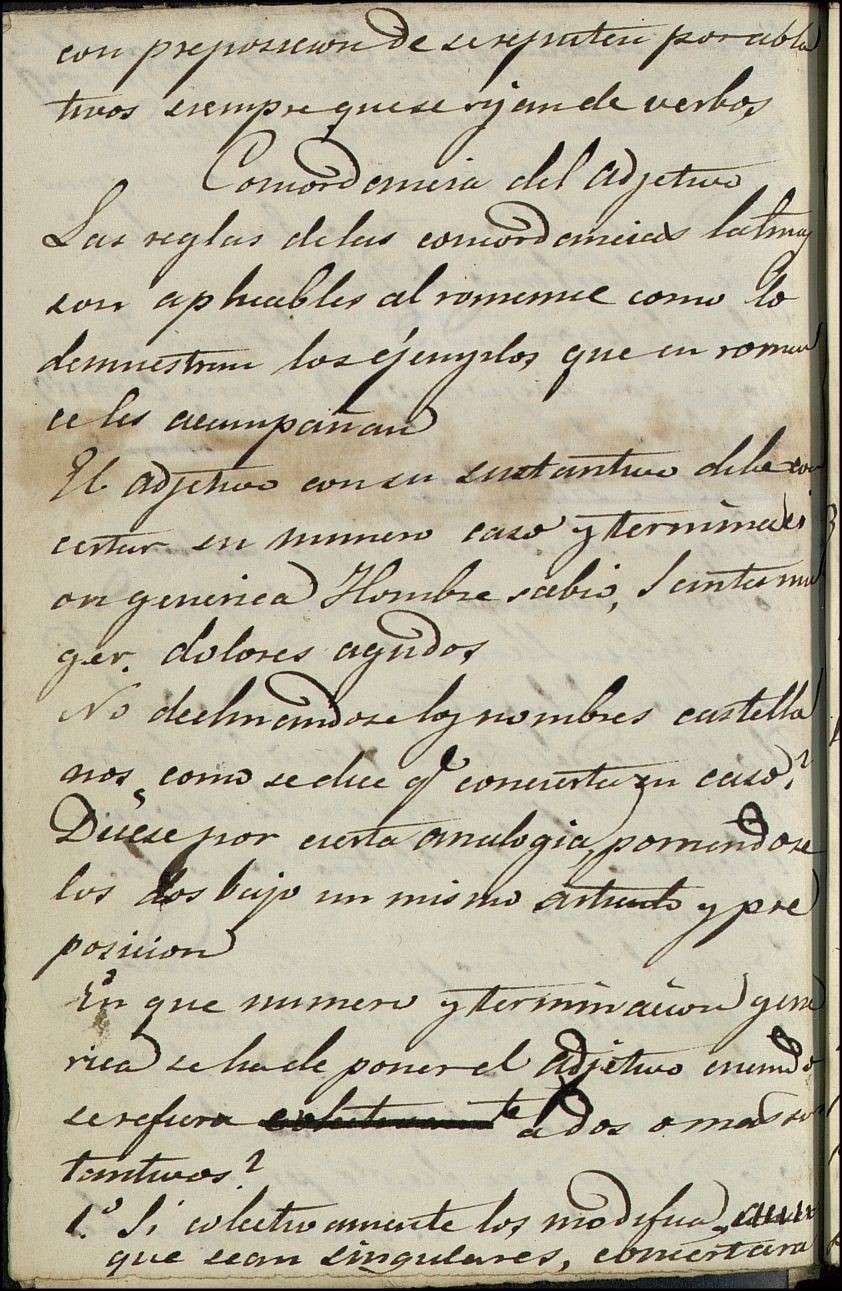 con preposicion de se reputen por abla
tivos siempre que se rijan de verbos
Concordancia del adjetivo
Las reglas de las concordancias latinas
son aplicables al romance como lo
demuestran los ejemplos que en roman
ce les acompañan
El adjetivo con su sustantivo debe con
certar en numero caso y terminaci
on generica Hombre sabio, Santa mu
ger. dolores agudos
No declinandose los nombres castella
nos como se dice q.e concierta en caso?
Dicese por cierta analogia, poniendose
los dos bajo un mismo articulo y pre
posicion
En que numero y terminacion gene
rica se ha de poner el adjetivo cuando
se refiera a dos o mas sus
tantivos?
1.o Si colectivamente los modifica, aun
que sean singulares, concertara